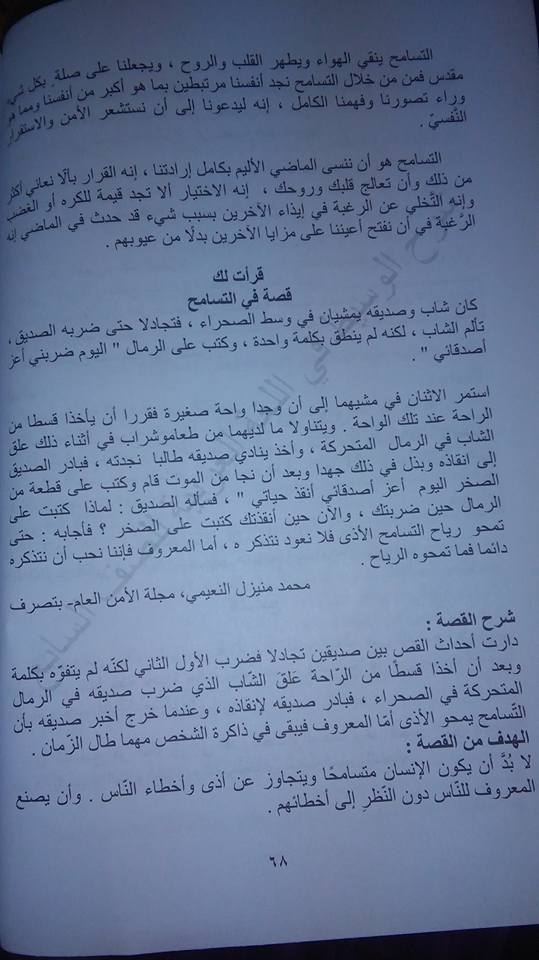 التسامح ينقي الهواء ويطهر القلب والروح ، ويجعلنا على صلة بكل شيء
مقدس فمن من خلال التسامح نجد أنفسنا مرتبطين بما هو أكبر من أنفسنا ومما هو
وراء تصورنا وفهمنا الكامل ، إنه ليدعونا إلى أن نستشعر الأمن والاستقرار
النّفسيّ .
التسامح هو أن ننسى الماضي الأليم بكامل إرادتنا ، إنه القرار بألّا نعاني أكثر
من ذلك وأن تعالج قلبك وروحك ، إنه الاختيار ألا تجد قيمة للكره أو الغضب
وإنه التّخلي عن الرغبة في إيذاء الآخرين بسبب شيء قد حدث في الماضي إنه
الرّغبة في أن نفتح أعيننا على مزايا الآخرين بدلًا من عيوبهم .
قرأت لك
قصة في التسامح
كان شاب وصديقه يمشيان في وسط الصحراء ، فتجادلا حتى ضربه الصديق ،
تألم الشاب ، لكنه لم ينطق بكلمة واحدة ، وكتب على الرمال " اليوم ضربني أعز
أصدقائي " .
استمر الاثنان في مشيهما إلى أن وجدا واحة صغيرة فقررا أن يأخذا قسطا من
الراحة عند تلك الواحة . ويتناولا ما لديهما من طعاموشراب في أثناء ذلك علق
الشاب في الرمال المتحركة ، وأخذ ينادي صديقه طالبا نجدته ، فبادر الصديق
إلى انقاذه وبذل في ذلك جهدا وبعد أن نجا من الموت قام وكتب على قطعة من
الصخر اليوم أعز أصدقائي أنقذ حياتي " ، فسأله الصديق : لماذا كتبت على
الرمال حين ضربتك ، والآن حين أنقذتك كتبت على الصخر ؟ فأجابه : حتى
تمحو رياح التسامح الأذى فلا نعود نتذكر ه ، أما المعروف فإننا نحب أن نتذكره
دائما فما تمحوه الرياح .
محمد منيزل النعيمي، مجلة الأمن العام- بتصرف
شرح القصة :
دارت أحداث القص بين صديقين تجادلا فضرب الأول الثاني لكنّه لم يتفوّه بكلمة
وبعد أن أخذا قسطًا من الرّاحة عَلقَ الشّاب الذي ضرب صديقه في الرمال
المتحركة في الصحراء ، فبادر صديقه لإنقاذه ، وعندما خرج أخبر صديقه بأن
التّسامح يمحو الأذى أمّا المعروف فيبقى في ذاكرة الشخص مهما طال الزّمان .
الهدف من القصة :
لا بُدَّ أن يكون الإنسان متسامحًا ويتجاوز عن أذى وأخطاء النّاس . وأن يصنع
المعروف للنّاس دون النّظرِ إلى أخطائهم .
٦٨